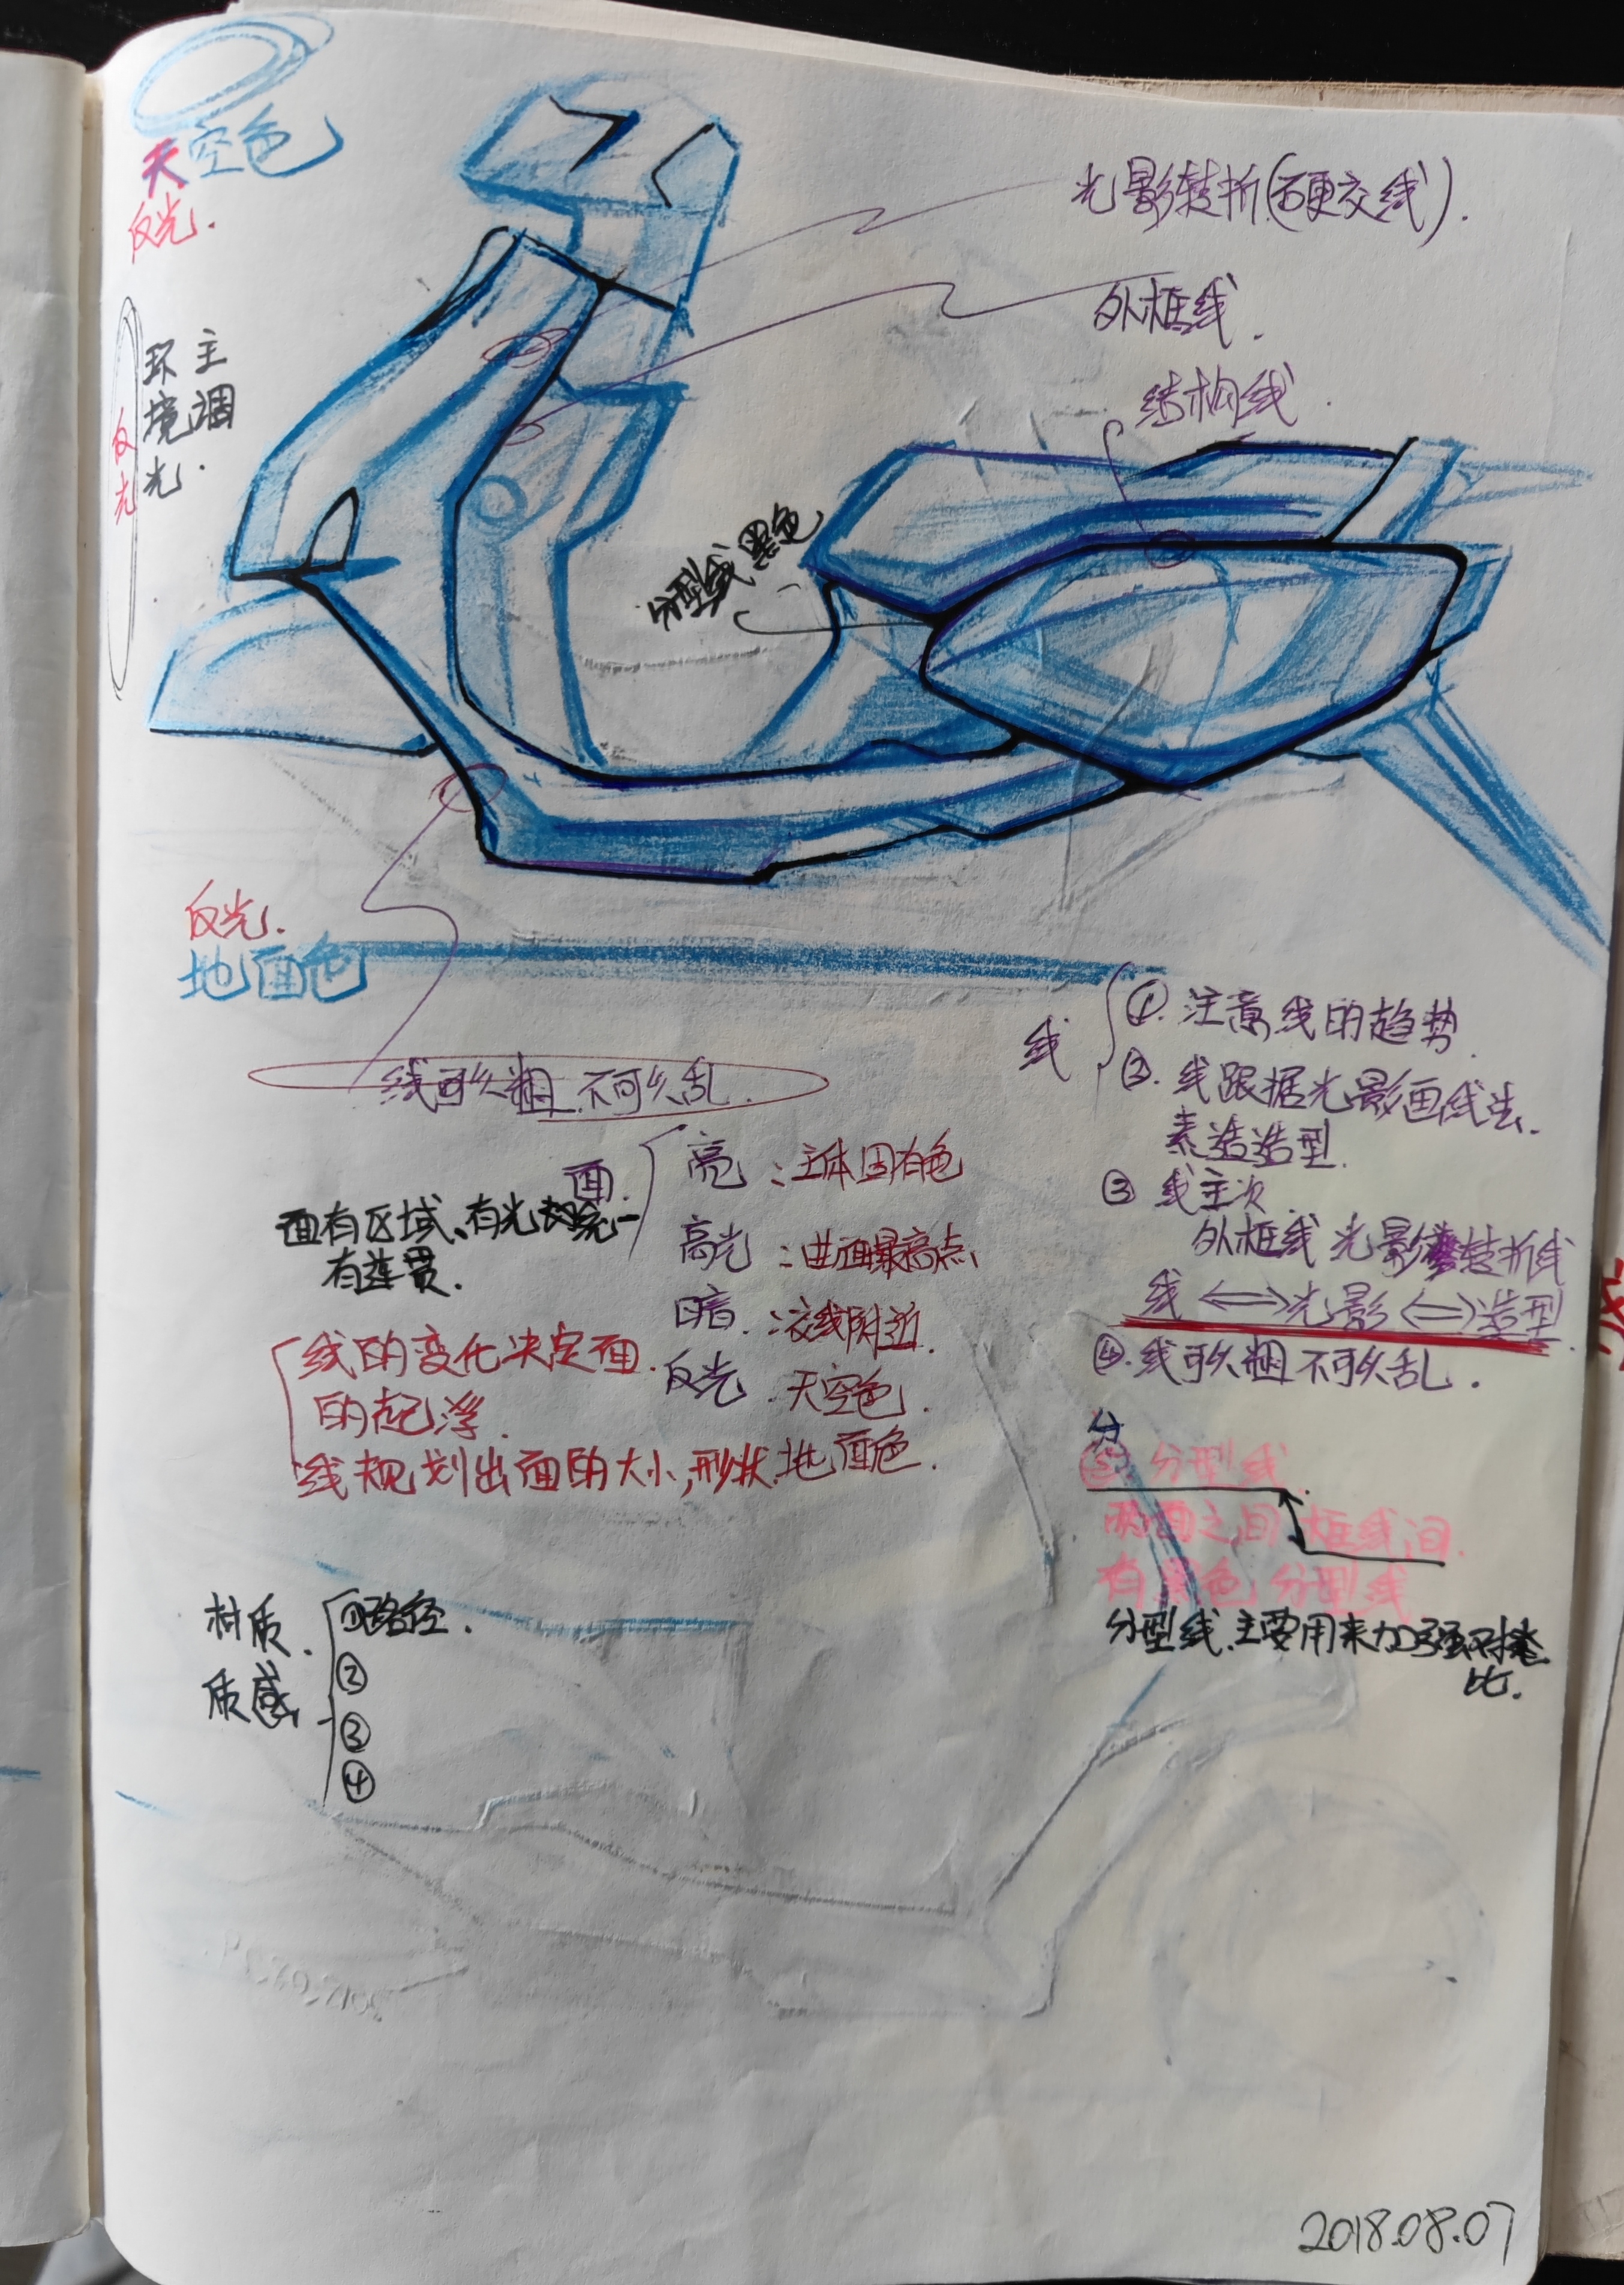 天空色
反光.
光影转折(硬交线).
外框线.
结构线.
主调
环境光.
反光
分型线黑色
反光.
地面色
线可以粗.不可以乱.
线
①.注意线的趋势
②.线跟据光影画线去.
素造造型.
③线主次.
外框线 光影转折线
线⇔光影⇔造型
④.线可以粗不可以乱.
面.
亮:主体固有色
高光:曲面最高点
暗.:交线附近.
反光.天空色.
地面色.
面有区域、有光
有连贯.
线的变化决定面
的起浮.
线规划出面的大小,形状.
分
⑤分型线
两面之间 框线间.
有黑色 分型线
分型线.主要用来加强对
比.
材质.
质感
①路径.
②
③
④
2018.08.07